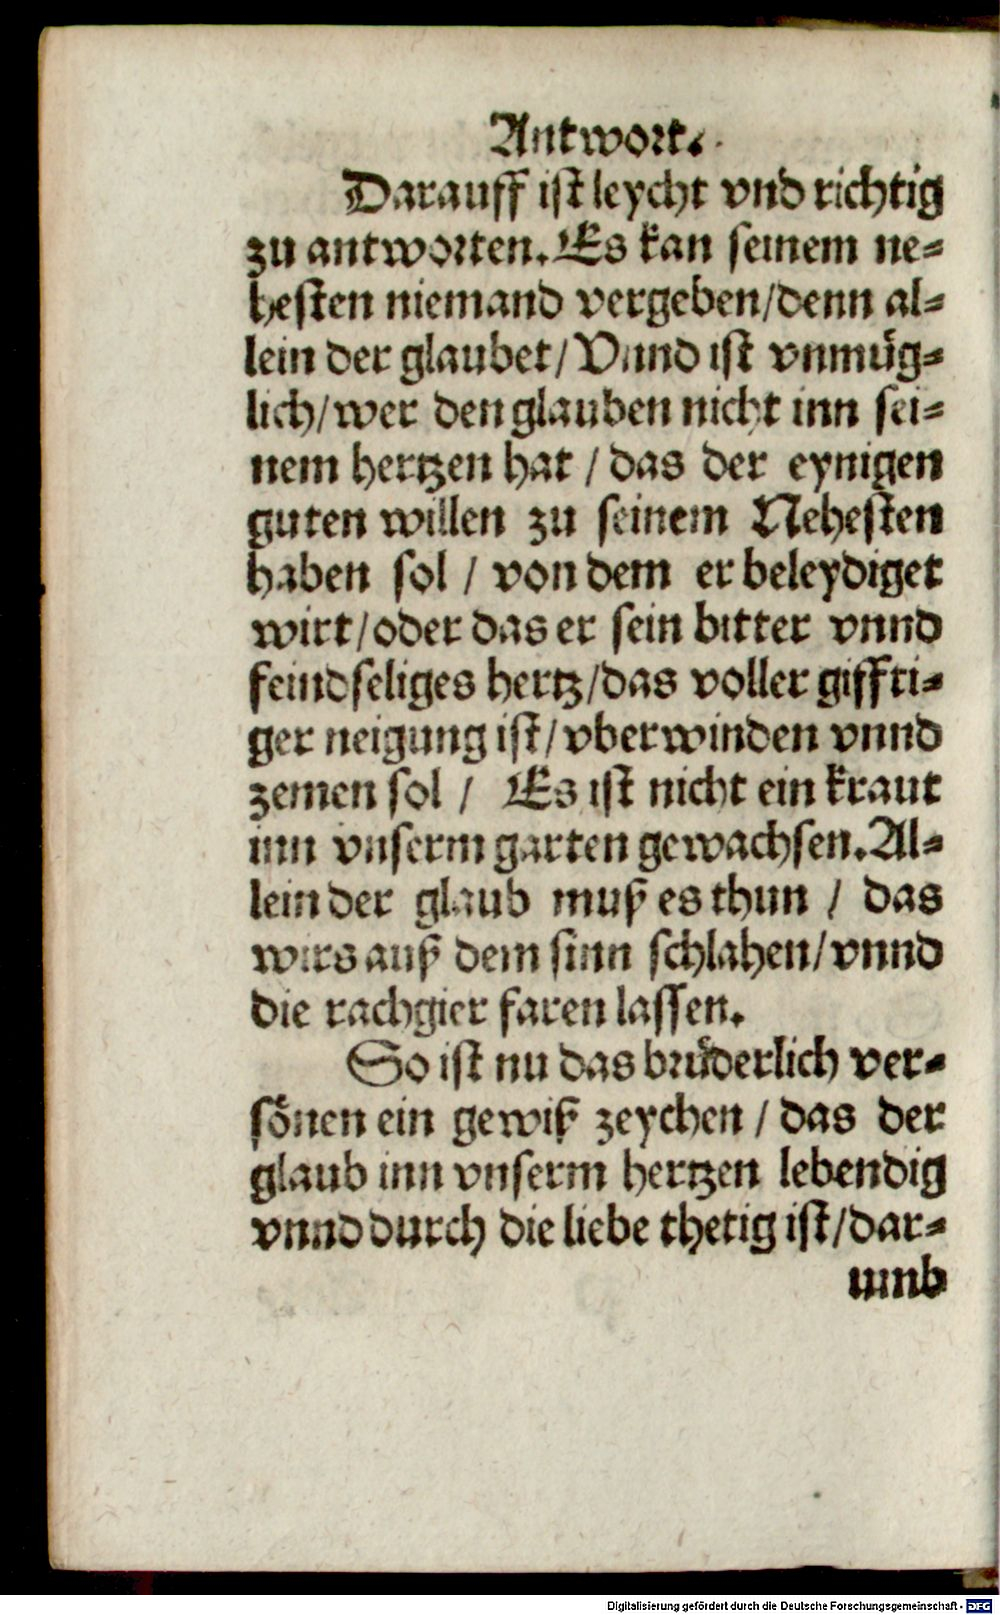 Antwort.
Darauff ist leycht vnd richtig
zu antworten. Es kan seinem ne-
hesten niemand vergeben/denn al-
lein der glaubet/ Vnnd ist vnmüg-
lich/wer den glauben nicht inn sei-
nem hertzen hat / das der eynigen
guten willen zu seinem Nehesten
haben sol / von dem er beleydiget
wirt/oder das er sein bitter vnnd
feindseliges hertz/das voller giffti-
ger neigung ist/vberwinden vnnd
zemen sol / Es ist nicht ein kraut
inn vnserm garten gewachsen. Al-
lein der glaub muß es thun / das
wirs auß dem sinn schlahen/vnnd
die rachgier faren lassen.
So ist nu das brüderlich ver-
sönen ein gewiß zeychen / das der
glaub inn vnserm hertzen lebendig
vnnd durch die liebe thetig ist/dar-
umb
Digitalisierung gefördert durch die Deutsche Forschungsgemeinschaft - DFG